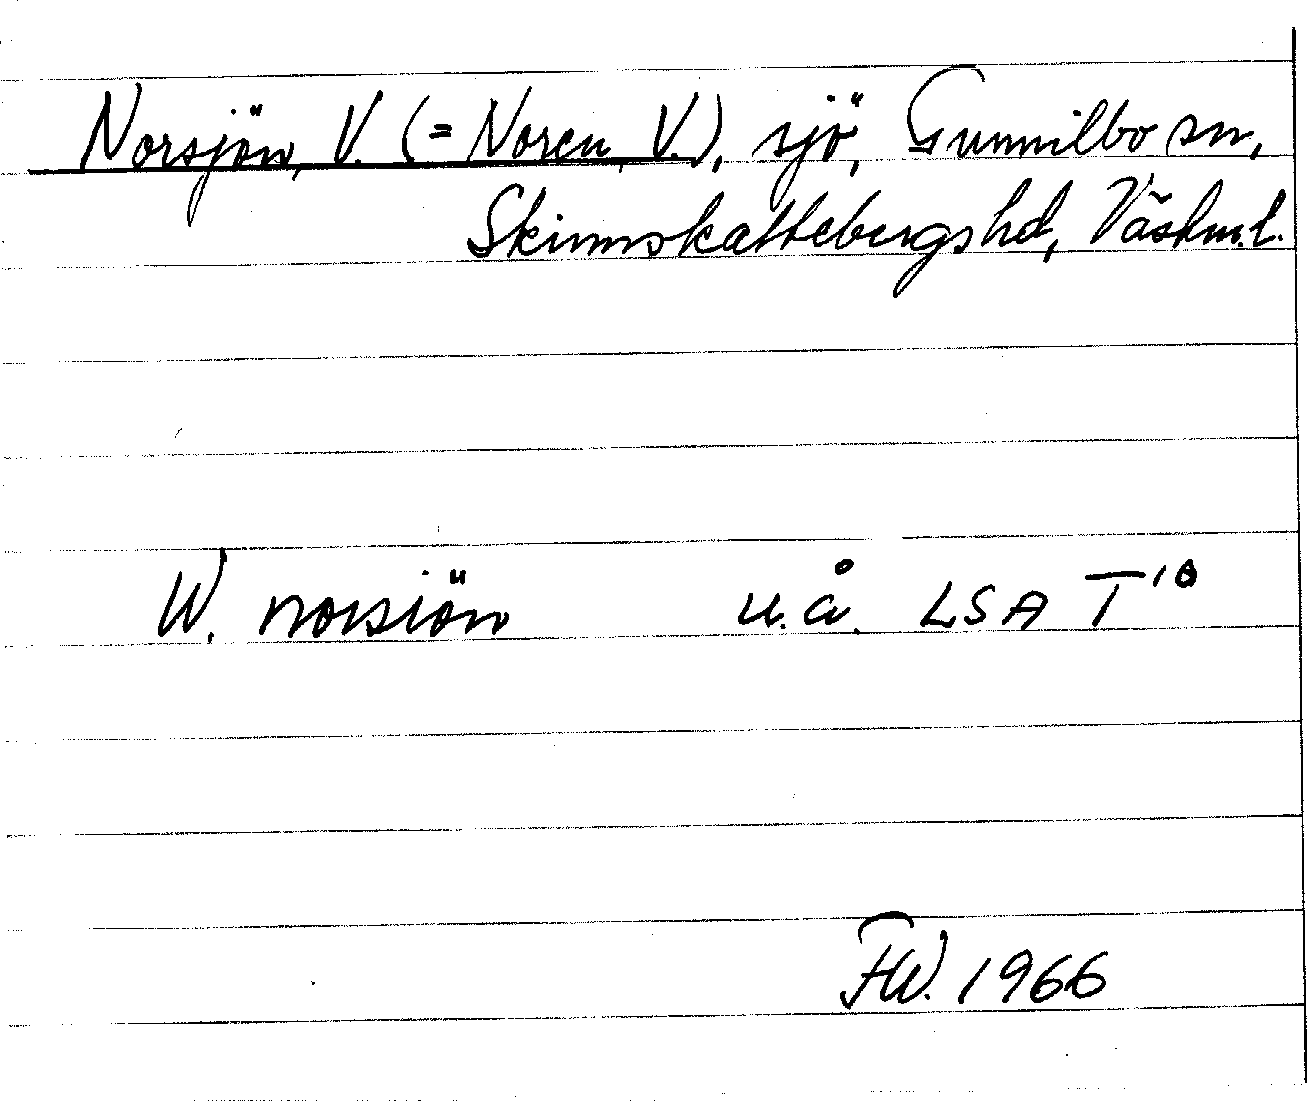 Norsjön, V. (= Noren, V.), sjö, Gunnilbo sn,
Skinnskattebergs hd, Västm.l.
W. norsiön u.å. LSA T 18
FW. 1966